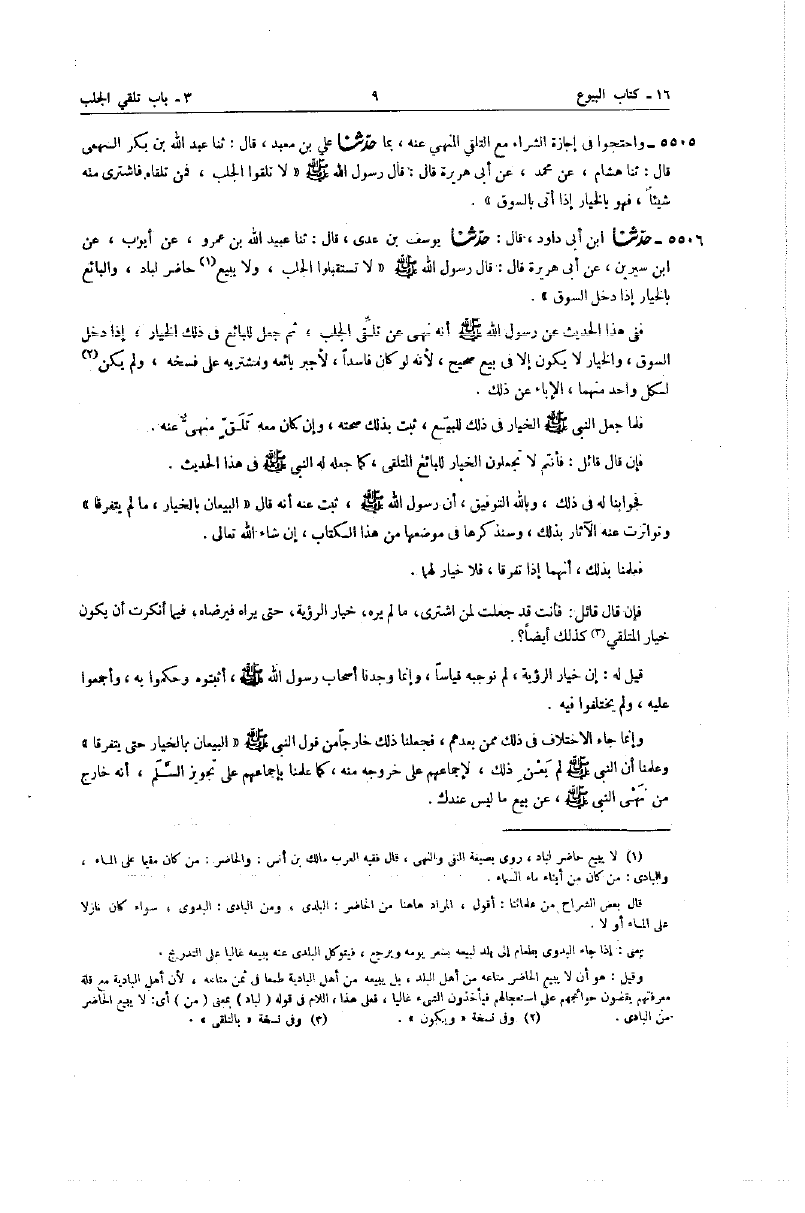 ١٦ - كتاب البيوع ٩ ٣ - باب تلقي الجلب
٥٥٠٥ - واحتجوا فى إجازة الشراء مع التلقى المنهى عنه ، بما حدثنا علي بن معبد ، قال : ثنا عبد الله بن بكر السهمى
قال : ثنا هشام ، عن محمد ، عن أبى هريرة قال : قال رسول الله ﷺ « لا تلقوا الجلب ، فمن تلقاه فاشترى منه
شيئاً ، فهو بالخيار إذا أتى بالسوق » .
٥٥٠٦ - حدثنا ابن أبى داود ، قال : حدثنا يوسف بن عدى ، قال : ثنا عبيد الله بن عمرو ، عن أيوب ، عن
ابن سيرين ، عن أبى هريرة قال : قال رسول الله ﷺ « لا تستقبلوا الجلب ، ولا يبيع(١) حاضر لباد ، والبائع
بالخيار إذا دخل السوق » .
ففى هذا الحديث عن رسول الله ﷺ أنه نهى عن تلقِّى الجلب ، ثم جعل للبائع فى ذلك الخيار ، إذا دخل
السوق ، والخيار لا يكون إلا فى بيع صحيح ، لأنه لو كان فاسداً ، لأجبر بائعه ومشتريه على فسخه ، ولم يكن(٢)
لكل واحد منهما ، الإباء عن ذلك .
فلما جعل النبي ﷺ الخيار فى ذلك للبيّع ، ثبت بذلك صحته ، وإن كان معه تَلَقٍّ منهىٌّ عنه .
فإن قال قائل : فأنتم لا تجعلون الخيار للبائع المتلقى ، كما جعله له النبي ﷺ فى هذا الحديث .
فجوابنا له فى ذلك ، وبالله التوفيق ، أن رسول الله ﷺ ، ثبت عنه أنه قال « البيعان بالخيار ، ما لم يتفرقا »
وتواترت عنه الآثار بذلك ، وسنذكرها فى موضعها من هذا الكتاب ، إن شاء الله تعالى .
فعلمنا بذلك ، أنهما إذا تفرقا ، فلا خيار لهما .
فإن قال قائل : فأنت قد جعلت لمن اشترى، ما لم يره، خيار الرؤية، حتى يراه فيرضاه، فبما أنكرت أن يكون
خيار المتلقي(٣) كذلك أيضاً؟ .
قيل له : إن خيار الرؤية ، لم نوجبه قياساً ، وإنما وجدنا أصحاب رسول الله ﷺ ، أثبتوه وحكموا به ، وأجمعوا
عليه ، ولم يختلفوا فيه .
وإنما جاء الاختلاف فى ذلك ممن بعدهم ، فجعلنا ذلك خارجاً من قول النبي ﷺ « البيعان بالخيار حتى يتفرقا »
وعلمنا أن النبي ﷺ لم يَعْنِ ذلك ، لإجماعهم على خروجه منه ، كما علمنا بإجماعهم على تجويز السَّلَم ، أنه خارج
من نَهْى النبي ﷺ ، عن بيع ما ليس عندك .
(١) لا يبيع حاضر لباد ، روى بصيغة النفى والنهى ، قال فقيه العرب مالك بن أنس : والحاضر : من كان مقيما على الماء ،
والبادى : من كان من أبناء ماء السماء .
قال بعض الشراح من علمائنا : أقول ، المراد هاهنا من الحاضر : البلدى ، ومن البادى : البدوى ، سواء كان نازلا
على الماء أو لا .
يعنى : إذا جاء البدوى بطعام إلى بلد ليبيعه بسعر يومه ويرجع ، فيتوكل البلدى عنه ببيعه غاليا على التدريج .
وقيل : هو أن لا يبيع الحاضر متاعه من أهل البلد ، بل يبيعه من أهل البادية طمعا فى ثمن متاعه ، لأن أهل البادية مع قلة
معرفتهم يقضون حوائجهم على استعجالهم فيأخذون الشىء غاليا ، فعلى هذا ، اللام فى قوله ( لباد ) بمعنى ( من ) أى: لا يبيع الحاضر
من البادى . (٢) وفى نسخة « ويكون » . (٣) وفى نسخة « بالتلقى » .